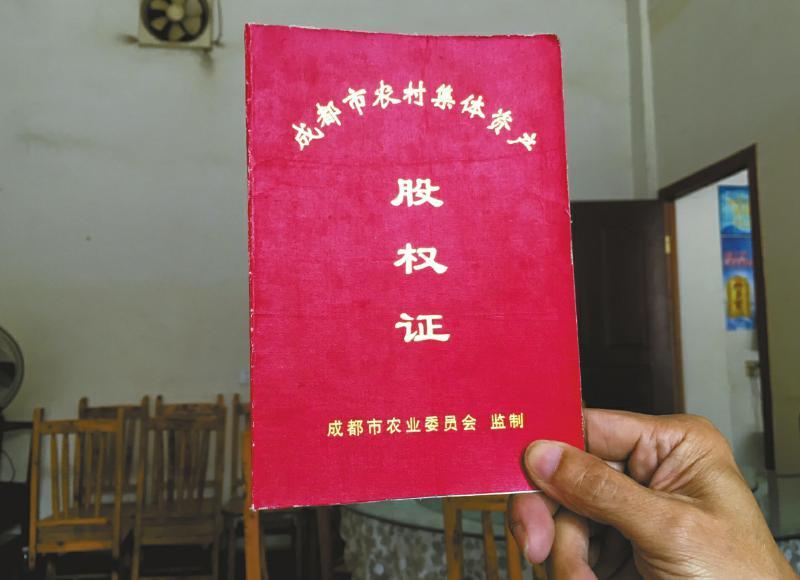 成都市农村集体资产
股
权
证
成都市农业委员会 监制